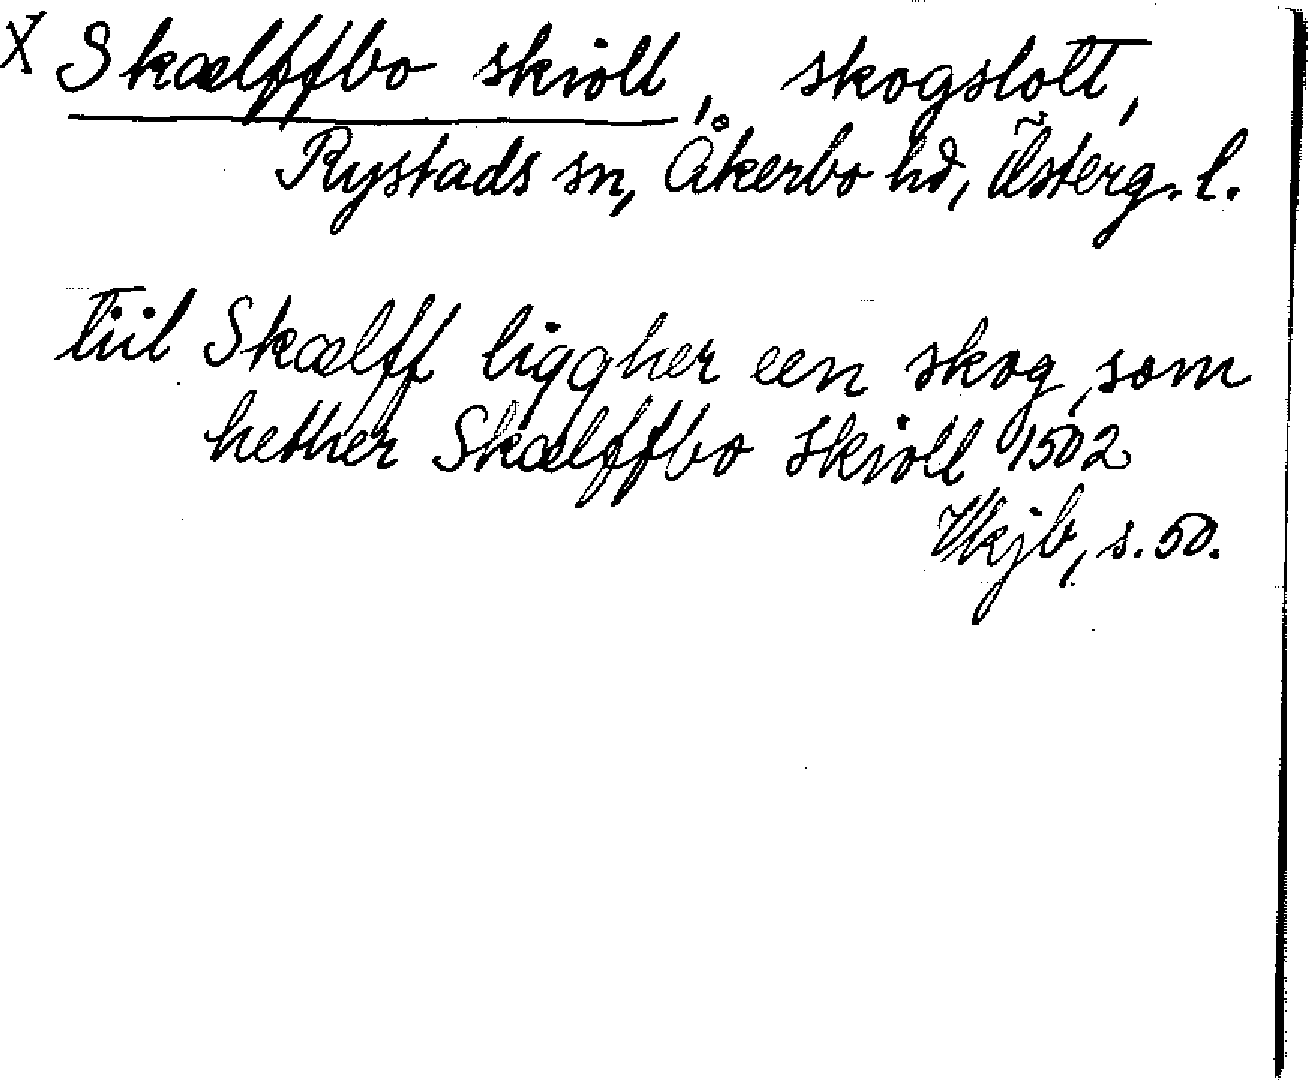 X Skælffbo skiöll, skogslott,
Rystads sn, Åkerbo hd, Österg. l.
tiil Skælff liggher een skog som
hether Skælffbo skiöll 1502
Vkjb, s. 50.